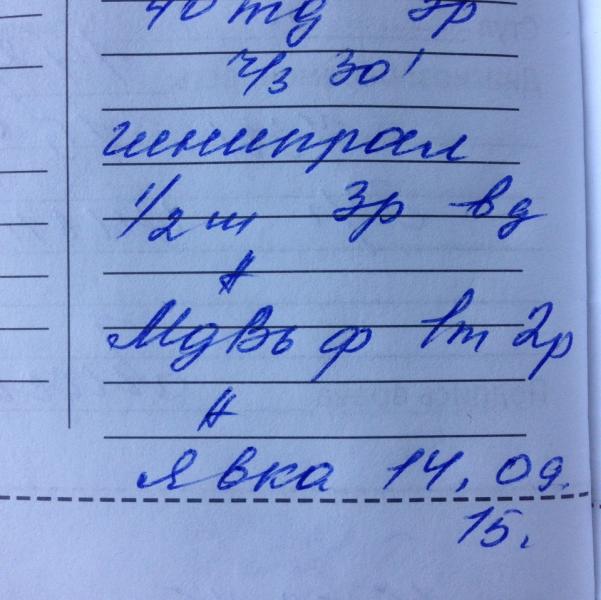 40 mg 3р
ч/з 30'
гинипрал
1/2 т 3р вд
#
МдВ6 ф 1т 2р
#
Явка 14.09.
15.